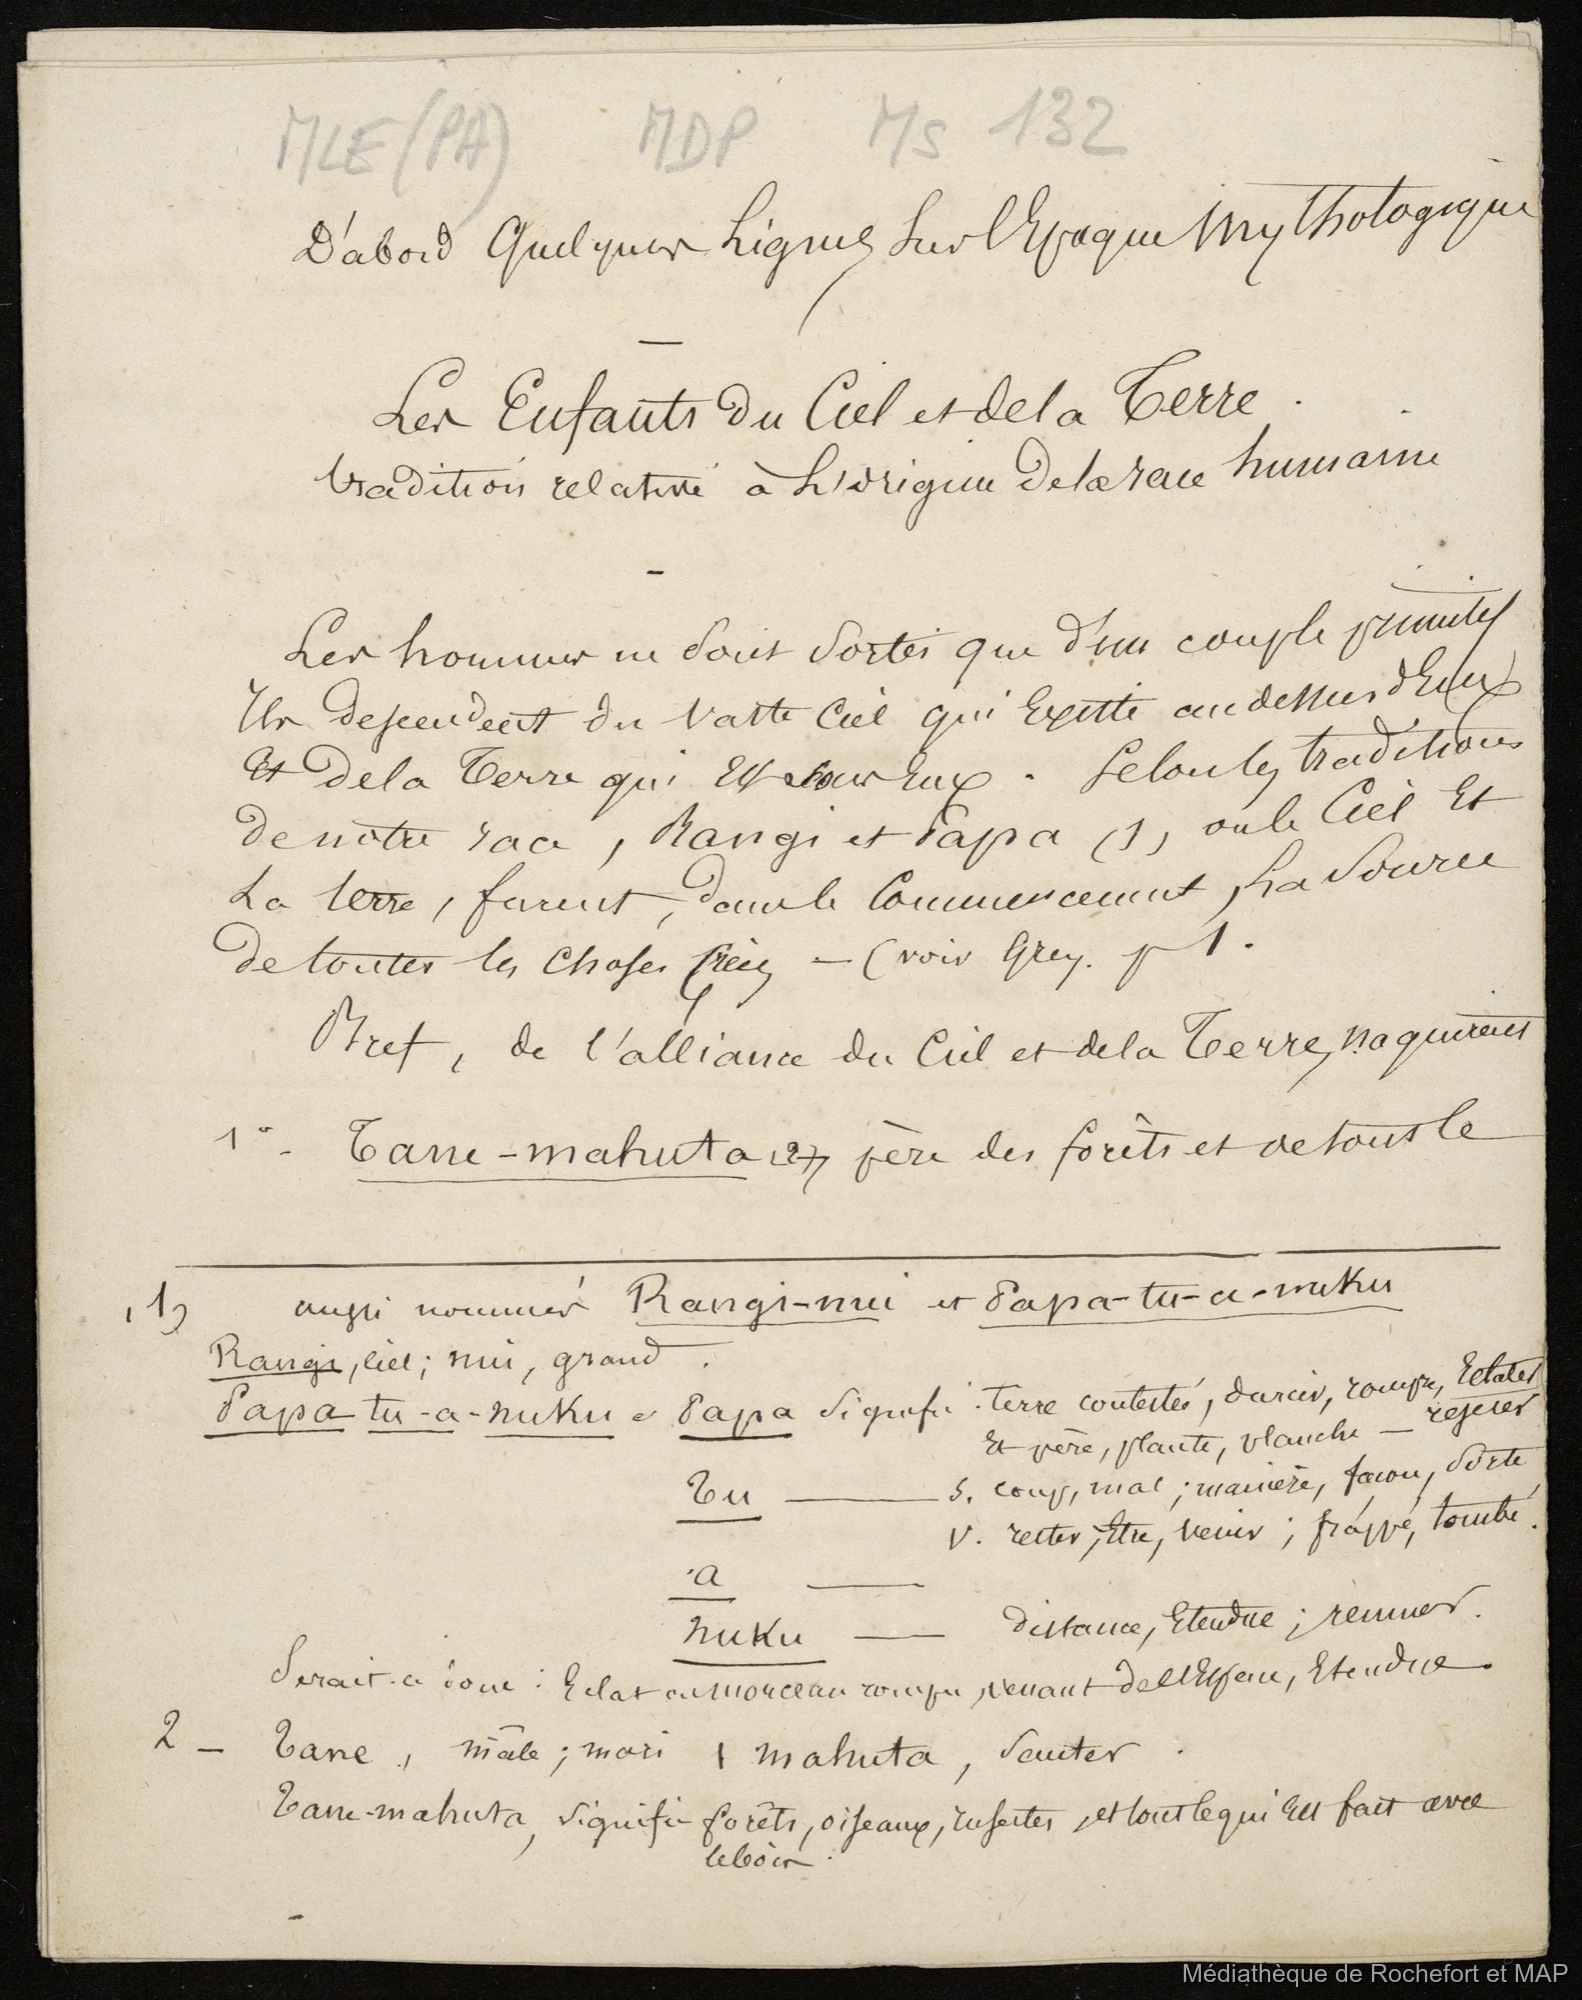 MLE (PA) MDP Ms 132
D'abord Quelques Lignes sur l'Epoque Mythologique
Les Enfants du Ciel et de la Terre.
tradition relative à L'origine de la race humaine
Les hommes ne sont sortis que d'un couple primitif
Ils descendent du vaste Ciel qui Existe au dessus d'Eux
Et de la Terre qui Est sous Eux. Selon les traditions
de notre race, Rangi et Papa (1) ou le Ciel Et
La terre, furent, dans le Commencement, La Source
de toutes les choses créées — (voir Grey. p 1.
Bref, de l'alliance du Ciel et de la Terre, naquirent
1° - Tane-mahuta (2) père des forêts et de tout le
(1) aussi nommés Rangi-nui et Papa-tu-a-nuku
Rangi, ciel; nui, grand.
Papa-tu-a-nuku Papa signifie: terre durcir, rompre, Eclater
Et père, plante, planche — rejeter
Tu — s. coup, mal; manière, façon, sorte
v. rester, Etre, venir; frappé, tombé.
a —
nuku — distance, Etendue; remuer.
Serait-ce donc: Eclat ou morceau rompu, venant de l'Espace, Etendue
2 - Tane, mâle; mari, mahuta, sauter.
Tane-mahuta, signifie forêts, oiseaux, insectes, et tout ce qui Est fait avec
le bois.
Médiathèque de Rochefort et MAP